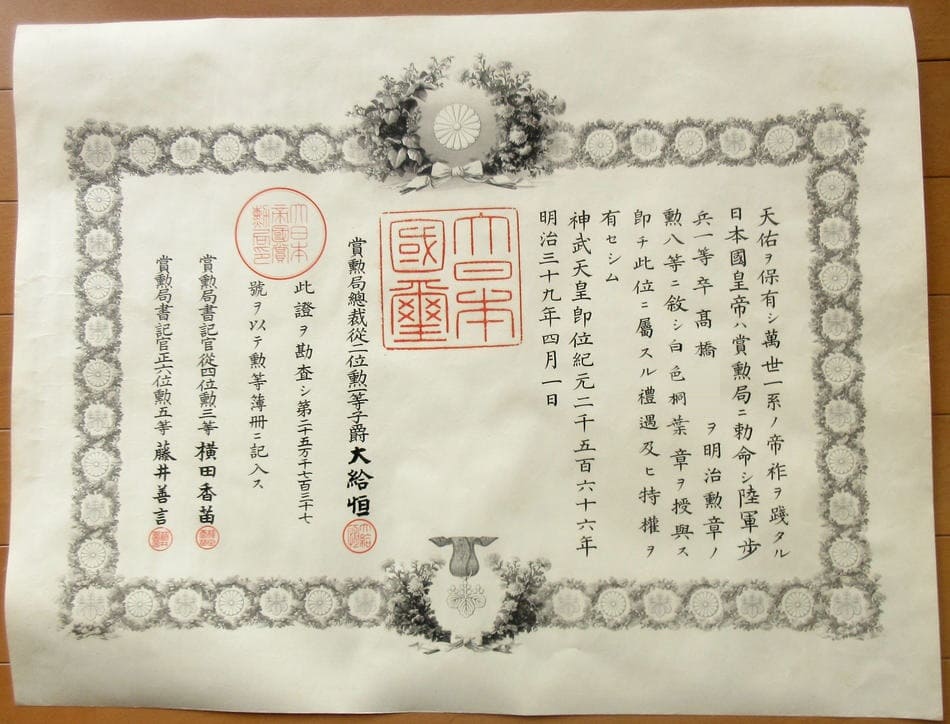 天佑ヲ保有シ萬世一系ノ帝祚ヲ踐タル
日本國皇帝ハ賞勲局ニ勅命シ陸軍歩
兵一等卒髙橋　ヲ明治勲章ノ
勲八等ニ敘シ白色桐葉章ヲ授與ス
卽チ此位ニ屬スル禮遇及ヒ特權ヲ
有セシム
神武天皇卽位紀元二千五百六十六年
明治三十九年四月一日
大日本
國璽
賞勲局總裁從二位勲一等子爵大給恒
大日本
帝國賞
勲局印
此證ヲ勘査シ第二十五万千七百三十七
號ヲ以テ勲等簿冊ニ記入ス
賞勲局書記官從四位勲三等橫田香苗
賞勲局書記官正六位勲五等藤井善言